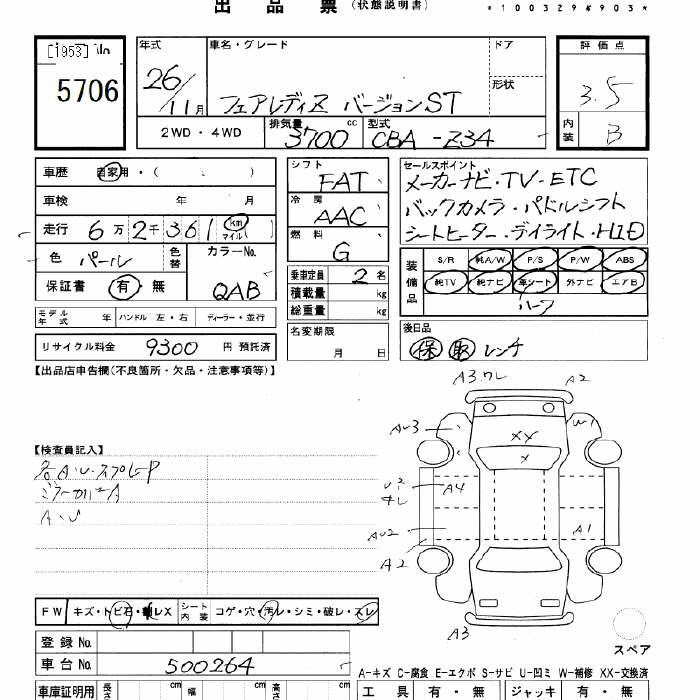 出品票 (状態説明書) *100329#903*
[1953] No
5706
年式 26/11月
車名・グレード フェアレディZ バージョンST
ドア
形状
評価点 3.5
内装 B
2WD・4WD 排気量 3700cc 型式 CBA-Z34
車歴 自家用・( 、 )
車検 年 月
走行 6万2千361 km マイル
色 パール 色替 カラーNo. QAB
保証書 有・無
シフト FAT
冷房 AAC
燃料 G
セールスポイント
メーカーナビ・TV・ETC
バックカメラ・パドルシフト
シートヒーター・デイライト・HID
装備品 S/R 純A/W P/S P/W ABS
純TV 純ナビ 革シート 外ナビ エアB
ハーフ
乗車定員 2名
積載量 kg
総重量 kg
モデル年式 年 ハンドル 左・右 ディーラー・並行
名変期限 月 日
後日品 保 取 レンチ
リサイクル料金 9300 円 預託済
【出品店申告欄(不良箇所・欠品・注意事項等)】
A3 ワレ A2
AU3 W1
XX
X
【検査員記入】
各A・U・スプレーP
ミラーカバーA
A・U
A4
AU2 A1
A2
A3
FW キズ・トビ石・割レX シート内装 コゲ・穴・汚レ・シミ・破レ・スレ
登録No.
車台No. 500264
スペア
A-キズ C-腐食 E-エクボ S-サビ U-凹ミ W-補修 XX-交換済
車庫証明用 長さ cm 幅 cm 高さ cm
工具 有・無 ジャッキ 有・無